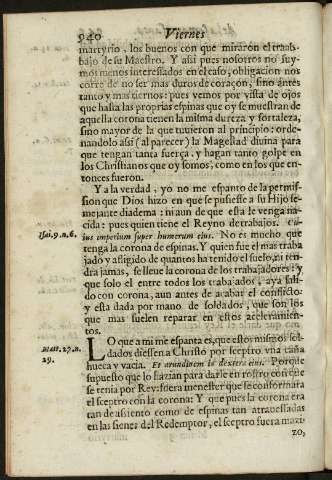 940 Viernes
martyrio, los buenos con que miraron el traba-
bajo de su Maestro. Y assi pues nosotros no suy-
mos menos interessados en el caso, obligacion nos
corre de no ser mas duros de coraçon, sino antes
tanto y mas tiernos: pues vemos por vista de ojos
que hasta las proprias espinas que oy se muestran de
aquella corona tienen la misma dureza y fortaleza,
sino mayor de la que tuuieron al principio: orde-
nandolo assi (al parecer) la Magestad diuina para
que tengan tanta fuerça, y hagan tanto golpe en
los Christianos que oy somos, como en los que en-
tonces fueron.
Y a la verdad, yo no me espanto de la permis-
sion que Dios hizo en que se pusiesse a su Hijo se-
mejante diadema: ni aun de que esta le venga na-
cida: pues quien tiene el Reyno de trabajos. Cu-
Isai.9.n.6.
ius imperium super humerum eius. No es mucho que
tenga la corona de espinas. Y quien fue el mas traba
jado y afligido de quantos ha tenido el suelo, ni ten
dra jamas, se lleue la corona de los trabajadores: y
que solo el entre todos los trabajados, aya sali-
do con corona, aun antes de acabar el conflicto:
y esta dada por mano de soldados, que son los
que mas suelen reparar en estos
tos.
LO que a mi me espanta es, que estos mismos sol-
dados diessen a Christo por sceptro vna caña
Matt. 27.n.
29.
hueca y vacia. Et arundinem in dextera eius. Porque
supuesto que lo hazian para darle en rostro con que
se tenia por Rey: fuera menester que se conformara
el sceptro con la corona: Y que pues la corona era
tan de assiento como de espinas tan atrauessadas
en las sienes del Redemptor, el sceptro fuera maci-
zo,